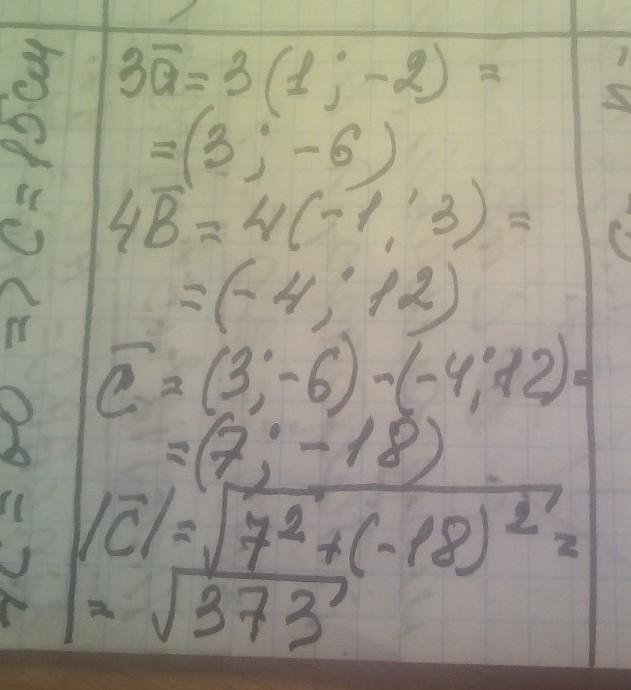 3a̅ = 3(1; -2) =
= (3; -6)
4B̅ = 4(-1; 3) =
= (-4; 12)
C̅ = (3; -6) - (-4; 12) =
= (7; -18)
|C̅| = √(7² + (-18)²) =
= √373
=> C = 15см